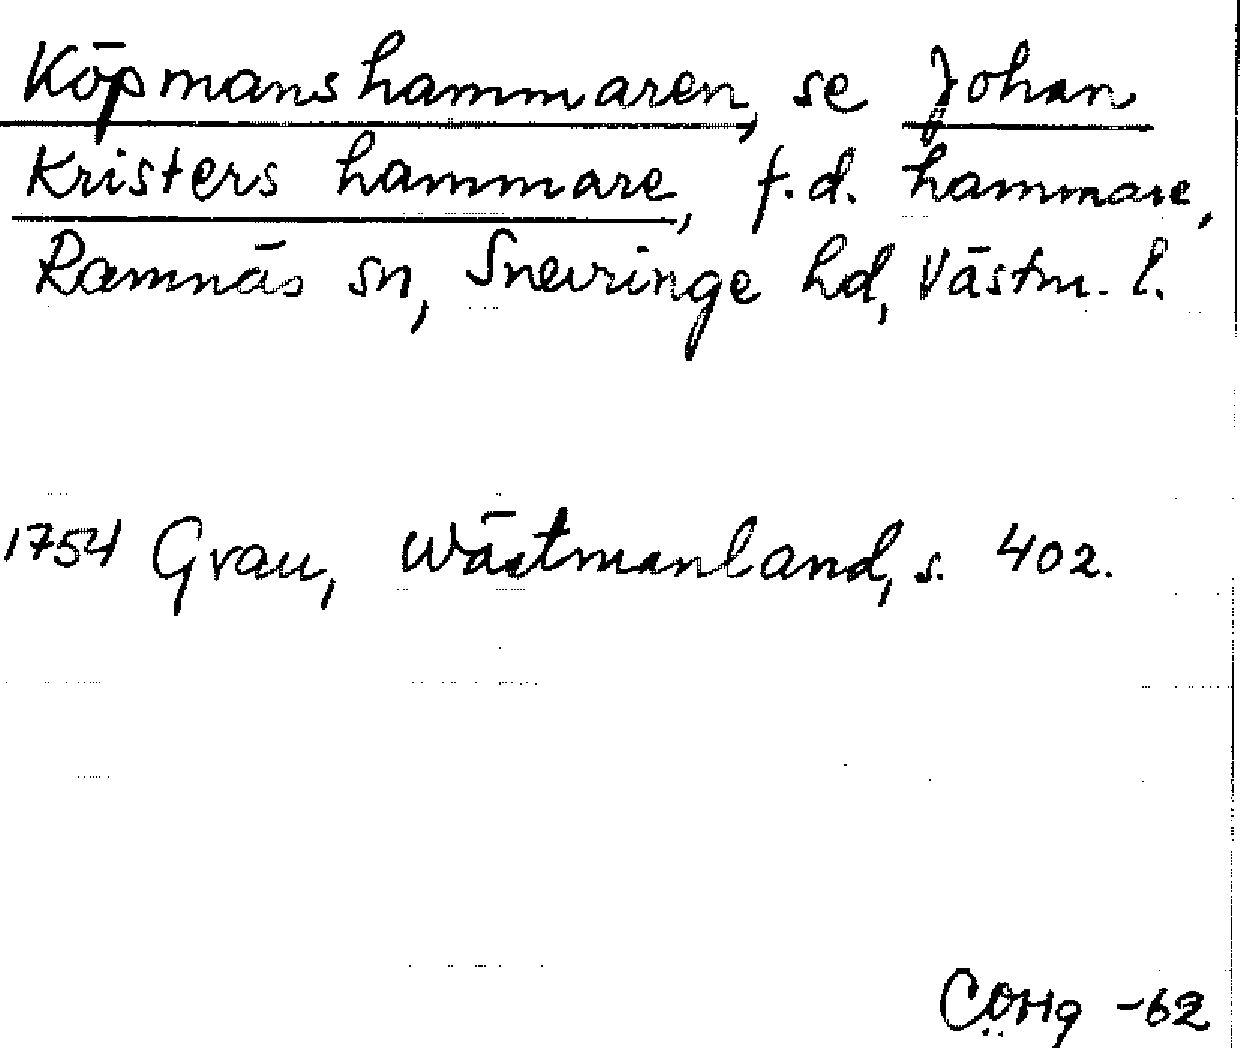 Köpmanshammaren, se Johan
Kristers hammare, f.d. hammare,
Ramnäs sn, Snevringe hd, Västm. l.
1754 Grau, Wästmanland, s. 402.
CÖHg -62